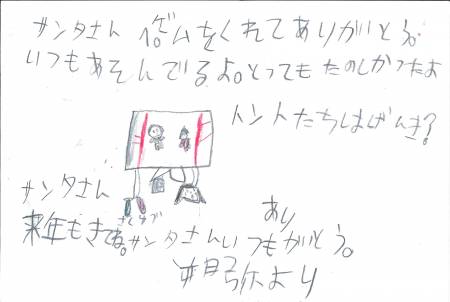 サンタさん ゲームをくれてありがとう。
いつもあそんでるよ。とってもたのしかったよ
トントたちはげんき?
サンタさん
来年もきてね。サンタさんいつもありがとう。
より